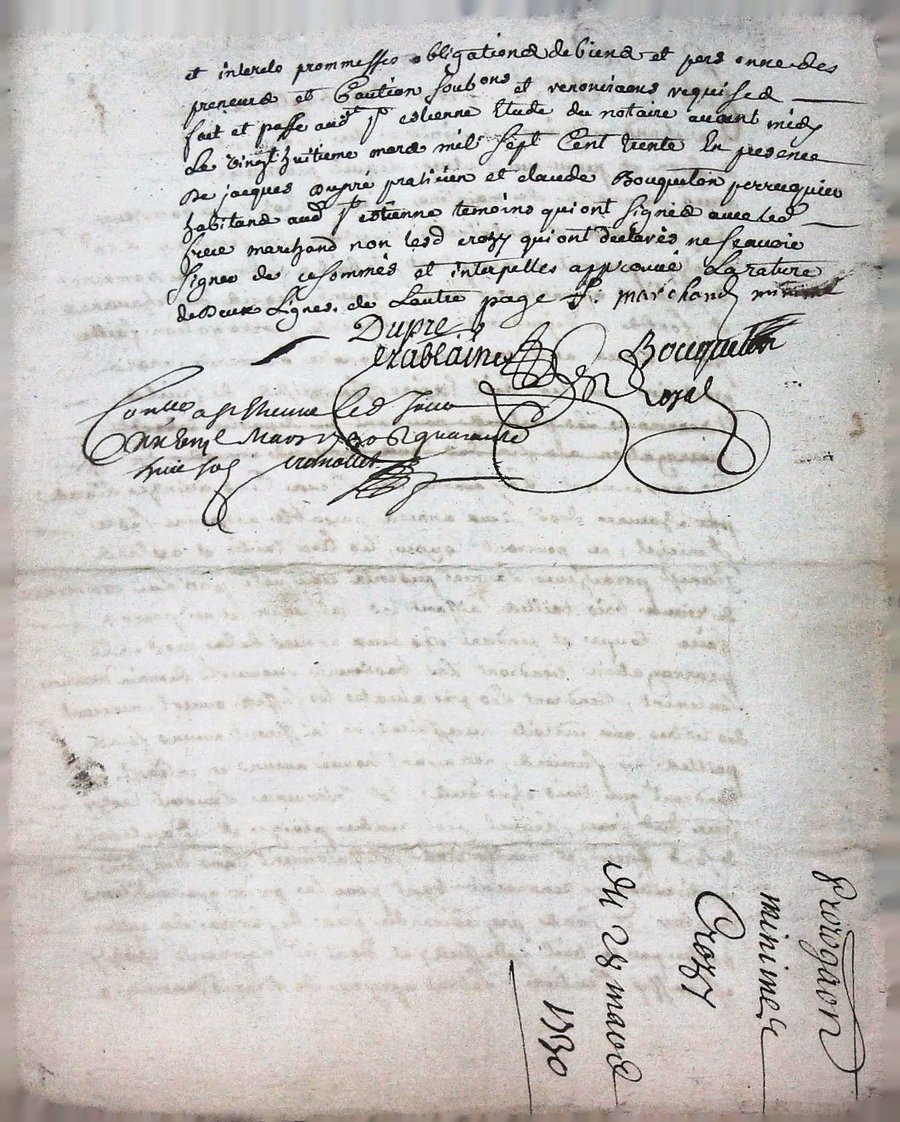 et interets prommesses obligations de biens et personne des
preneurs et Caution soubons et renonciaons requises
fait et passé audt st estienne Etude du notaire avant midy
Le vingt huitieme mars mil sept Cent trente En presence
De jacques Dupré praticien et claude Bouquelon perruquier
habitans aud st estienne temoins qui ont signés avec led
frere marchand non lesd crozy qui ont declarés ne scavoir
signer de ce sommés et interpelles approuvé La rature
de Deux Lignes. de Lautre page f. marchand minime
Dupre
Bouquelon
Conlle a st Etienne led jour
mars 1730 quarante
huit sols
prorogaon
minimes
Crozy
du 28 mars
1730